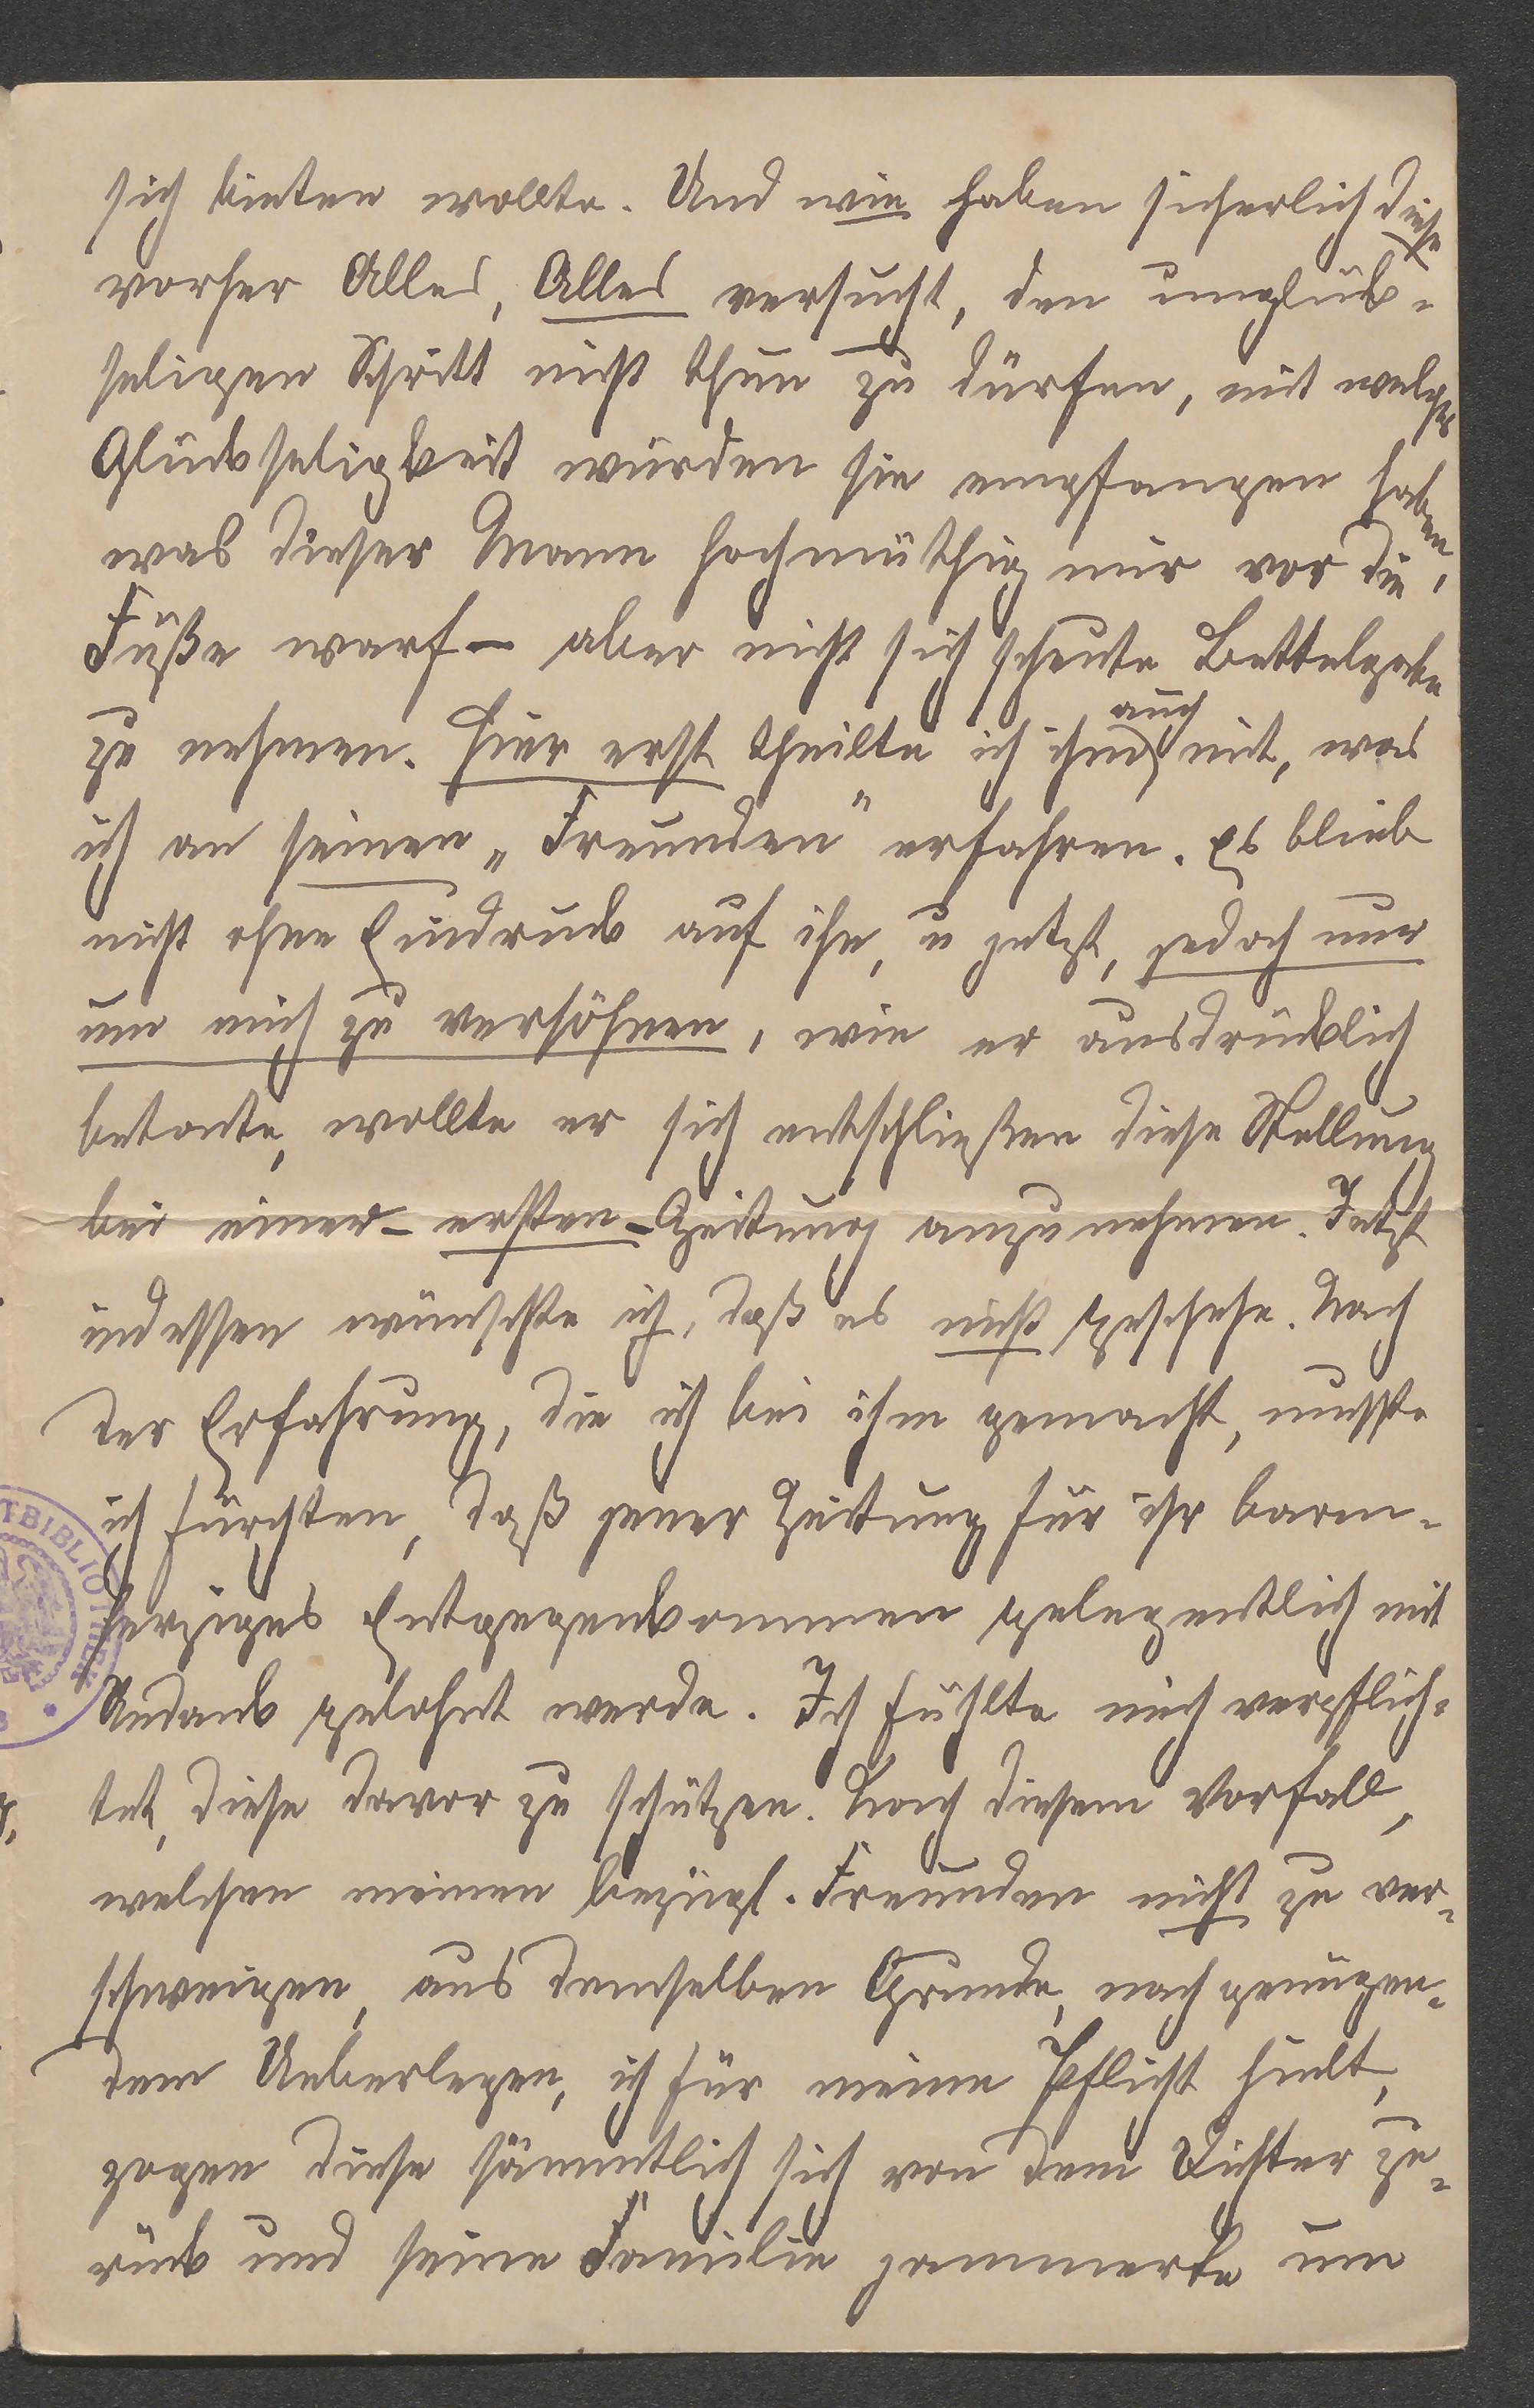 sich bieten wollte. Und wie haben sicherlich diese
vorher Alles, Alles versucht, den unglück-
seligen Schritt nicht thun zu dürfen, mit welcher
Glückseligkeit würden sie empfangen haben,
was dieser Mann hochmüthig mir vor die
Füße warf – aber nicht sich scheute Bettelgabe
zu nehmen. Hier erst theilte ich ihm auch mit, was
ich an seinen „Freunden" erfahren. Es blieb
nicht ohne Eindruck auf ihn, u jetzt, jedoch nur
um mich zu versöhnen, wie er ausdrücklich
betonte, wollte er sich entschließen diese Stellung
bei einer – ersten – Zeitung anzunehmen. Jetzt
indessen wünschte ich, daß es nicht geschehe. Nach
der Erfahrung, die ich bei ihm gemacht, musste
ich fürchten, daß jener Zeitung für ihr barm-
herziges Entgegenkommen gelegentlich mit
Undank gelohnt werde. Ich fühlte mich verpflich-
tet, diese davor zu schützen. Nach diesem Vorfall,
welchen meinen bezügl. Freunden nicht zu ver-
schweigen, aus demselben Grunde, nach genügen-
dem Ueberlegen, ich für meine Pflicht hielt,
zogen diese sämmtlich sich von dem Dichter zu-
rück und seine Familie jammerte um
TBIBLIOTHEK